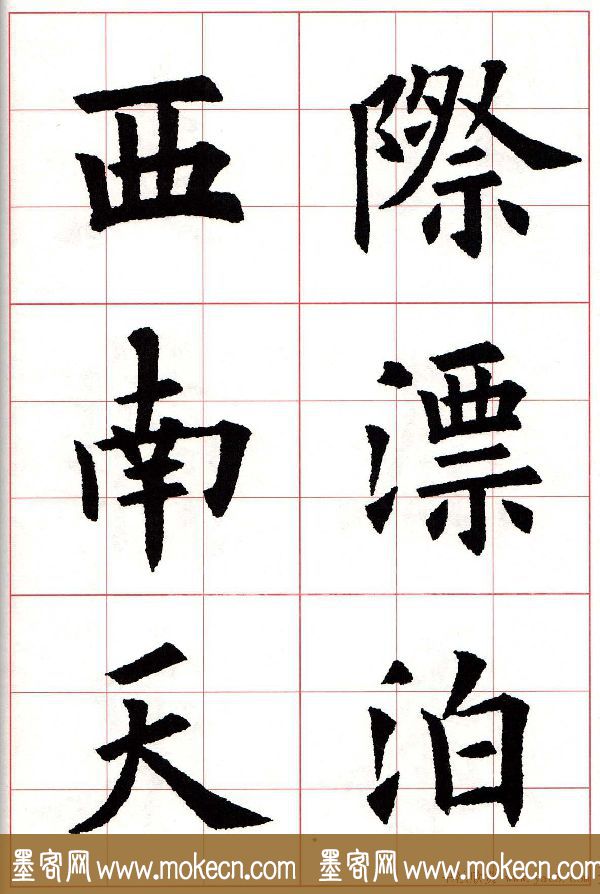 際漂泊
西南天
墨客网 www.mokecn.com 墨客网 www.mokecn.com